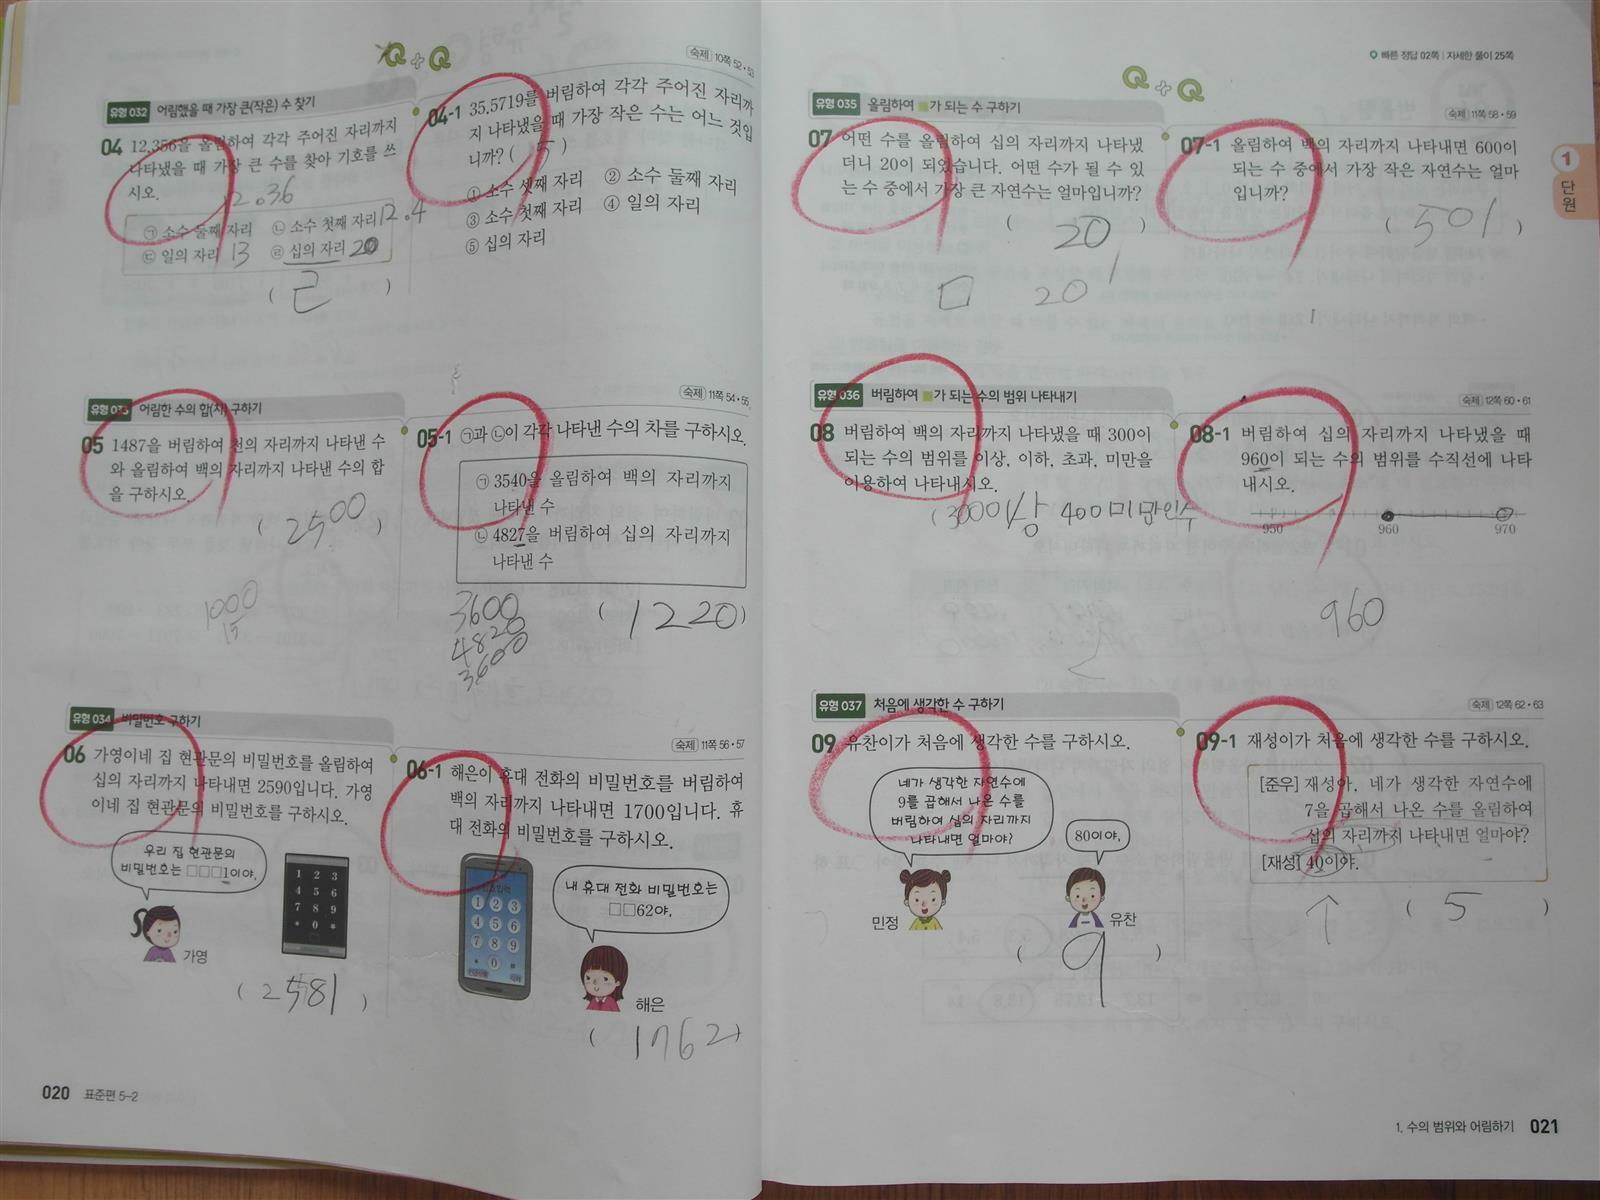 Q+Q
숙제 10쪽 52·53
유형 032 어림했을 때 가장 큰(작은) 수 찾기
04 12.356을 올림하여 각각 주어진 자리까지
나타냈을 때 가장 큰 수를 찾아 기호를 쓰
시오.
12.36
㉠ 소수 둘째 자리 ㉡ 소수 첫째 자리 12.4
㉢ 일의 자리 13 ㉣ 십의 자리 20
( ㄹ )
04-1 35.5719를 버림하여 각각 주어진 자리까
지 나타냈을 때 가장 작은 수는 어느 것입
니까? ( 5 )
① 소수 셋째 자리 ② 소수 둘째 자리
③ 소수 첫째 자리 ④ 일의 자리
⑤ 십의 자리
유형 033 어림한 수의 합(차) 구하기
숙제 11쪽 54·55
05 1487을 버림하여 천의 자리까지 나타낸 수
와 올림하여 백의 자리까지 나타낸 수의 합
을 구하시오.
( 2500 )
1000
15
05-1 ㉠과 ㉡이 각각 나타낸 수의 차를 구하시오.
㉠ 3540을 올림하여 백의 자리까지
나타낸 수
㉡ 4827을 버림하여 십의 자리까지
나타낸 수
3600
4820
3600
( 1220 )
유형 034 비밀번호 구하기
숙제 11쪽 56·57
06 가영이네 집 현관문의 비밀번호를 올림하여
십의 자리까지 나타내면 2590입니다. 가영
이네 집 현관문의 비밀번호를 구하시오.
우리 집 현관문의
비밀번호는 □□□1이야.
1 2 3
4 5 6
7 8 9
* 0 #
가영
( 2581 )
06-1 해은이 휴대 전화의 비밀번호를 버림하여
백의 자리까지 나타내면 1700입니다. 휴
대 전화의 비밀번호를 구하시오.
1 2 3
4 5 6
7 8 9
0
내 휴대 전화 비밀번호는
□□62야.
해은
( 1762 )
020 표준편 5-2
빠른 정답 02쪽 | 자세한 풀이 25쪽
Q+Q
유형 035 올림하여 ■가 되는 수 구하기
숙제 11쪽 58·59
07 어떤 수를 올림하여 십의 자리까지 나타냈
더니 20이 되었습니다. 어떤 수가 될 수 있
는 수 중에서 가장 큰 자연수는 얼마입니까?
( 20 )
□ 20
07-1 올림하여 백의 자리까지 나타내면 600이
되는 수 중에서 가장 작은 자연수는 얼마
입니까?
( 501 )
1
단원
유형 036 버림하여 ■가 되는 수의 범위 나타내기
숙제 12쪽 60·61
08 버림하여 백의 자리까지 나타냈을 때 300이
되는 수의 범위를 이상, 이하, 초과, 미만을
이용하여 나타내시오.
(300이상 400미만인수
08-1 버림하여 십의 자리까지 나타냈을 때
960이 되는 수의 범위를 수직선에 나타
내시오.
950 960 970
960
유형 037 처음에 생각한 수 구하기
숙제 12쪽 62·63
09 유찬이가 처음에 생각한 수를 구하시오.
네가 생각한 자연수에
9를 곱해서 나온 수를
버림하여 십의 자리까지
나타내면 얼마야?
80이야.
민정
유찬
( 9 )
09-1 재성이가 처음에 생각한 수를 구하시오.
[준우] 재성아, 네가 생각한 자연수에
7을 곱해서 나온 수를 올림하여
십의 자리까지 나타내면 얼마야?
[재성] 40이야.
( 5 )
1. 수의 범위와 어림하기 021